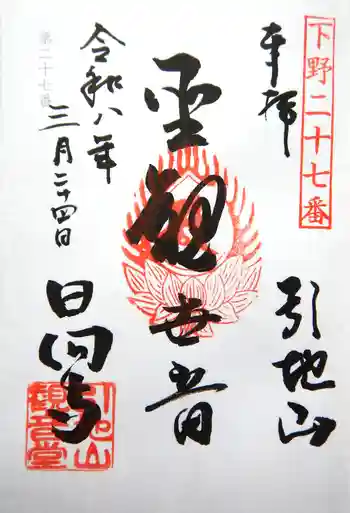 下野二十七番
奉拝
引地山
聖観世音
第二十七番
令和八年
三月二十四日
日向寺
引地山
観音堂